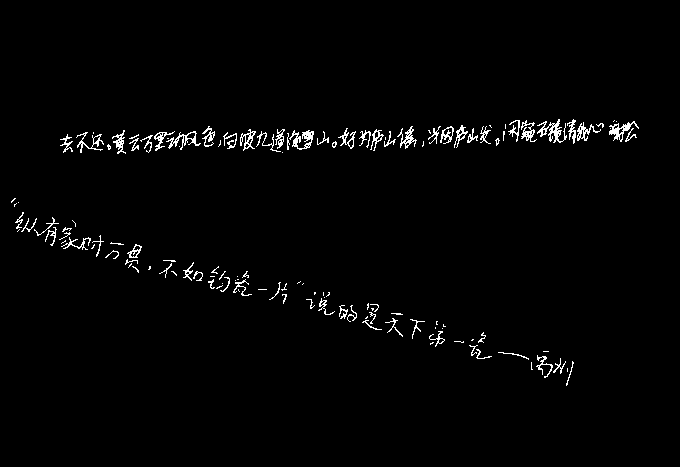 去不还。黄云万里动风色,白波九道流雪山。好为庐山谣,兴因庐山发。闲窥石镜清我心
“纵有家财万贯,不如钧瓷一片”说的是天下第一瓷——禹州